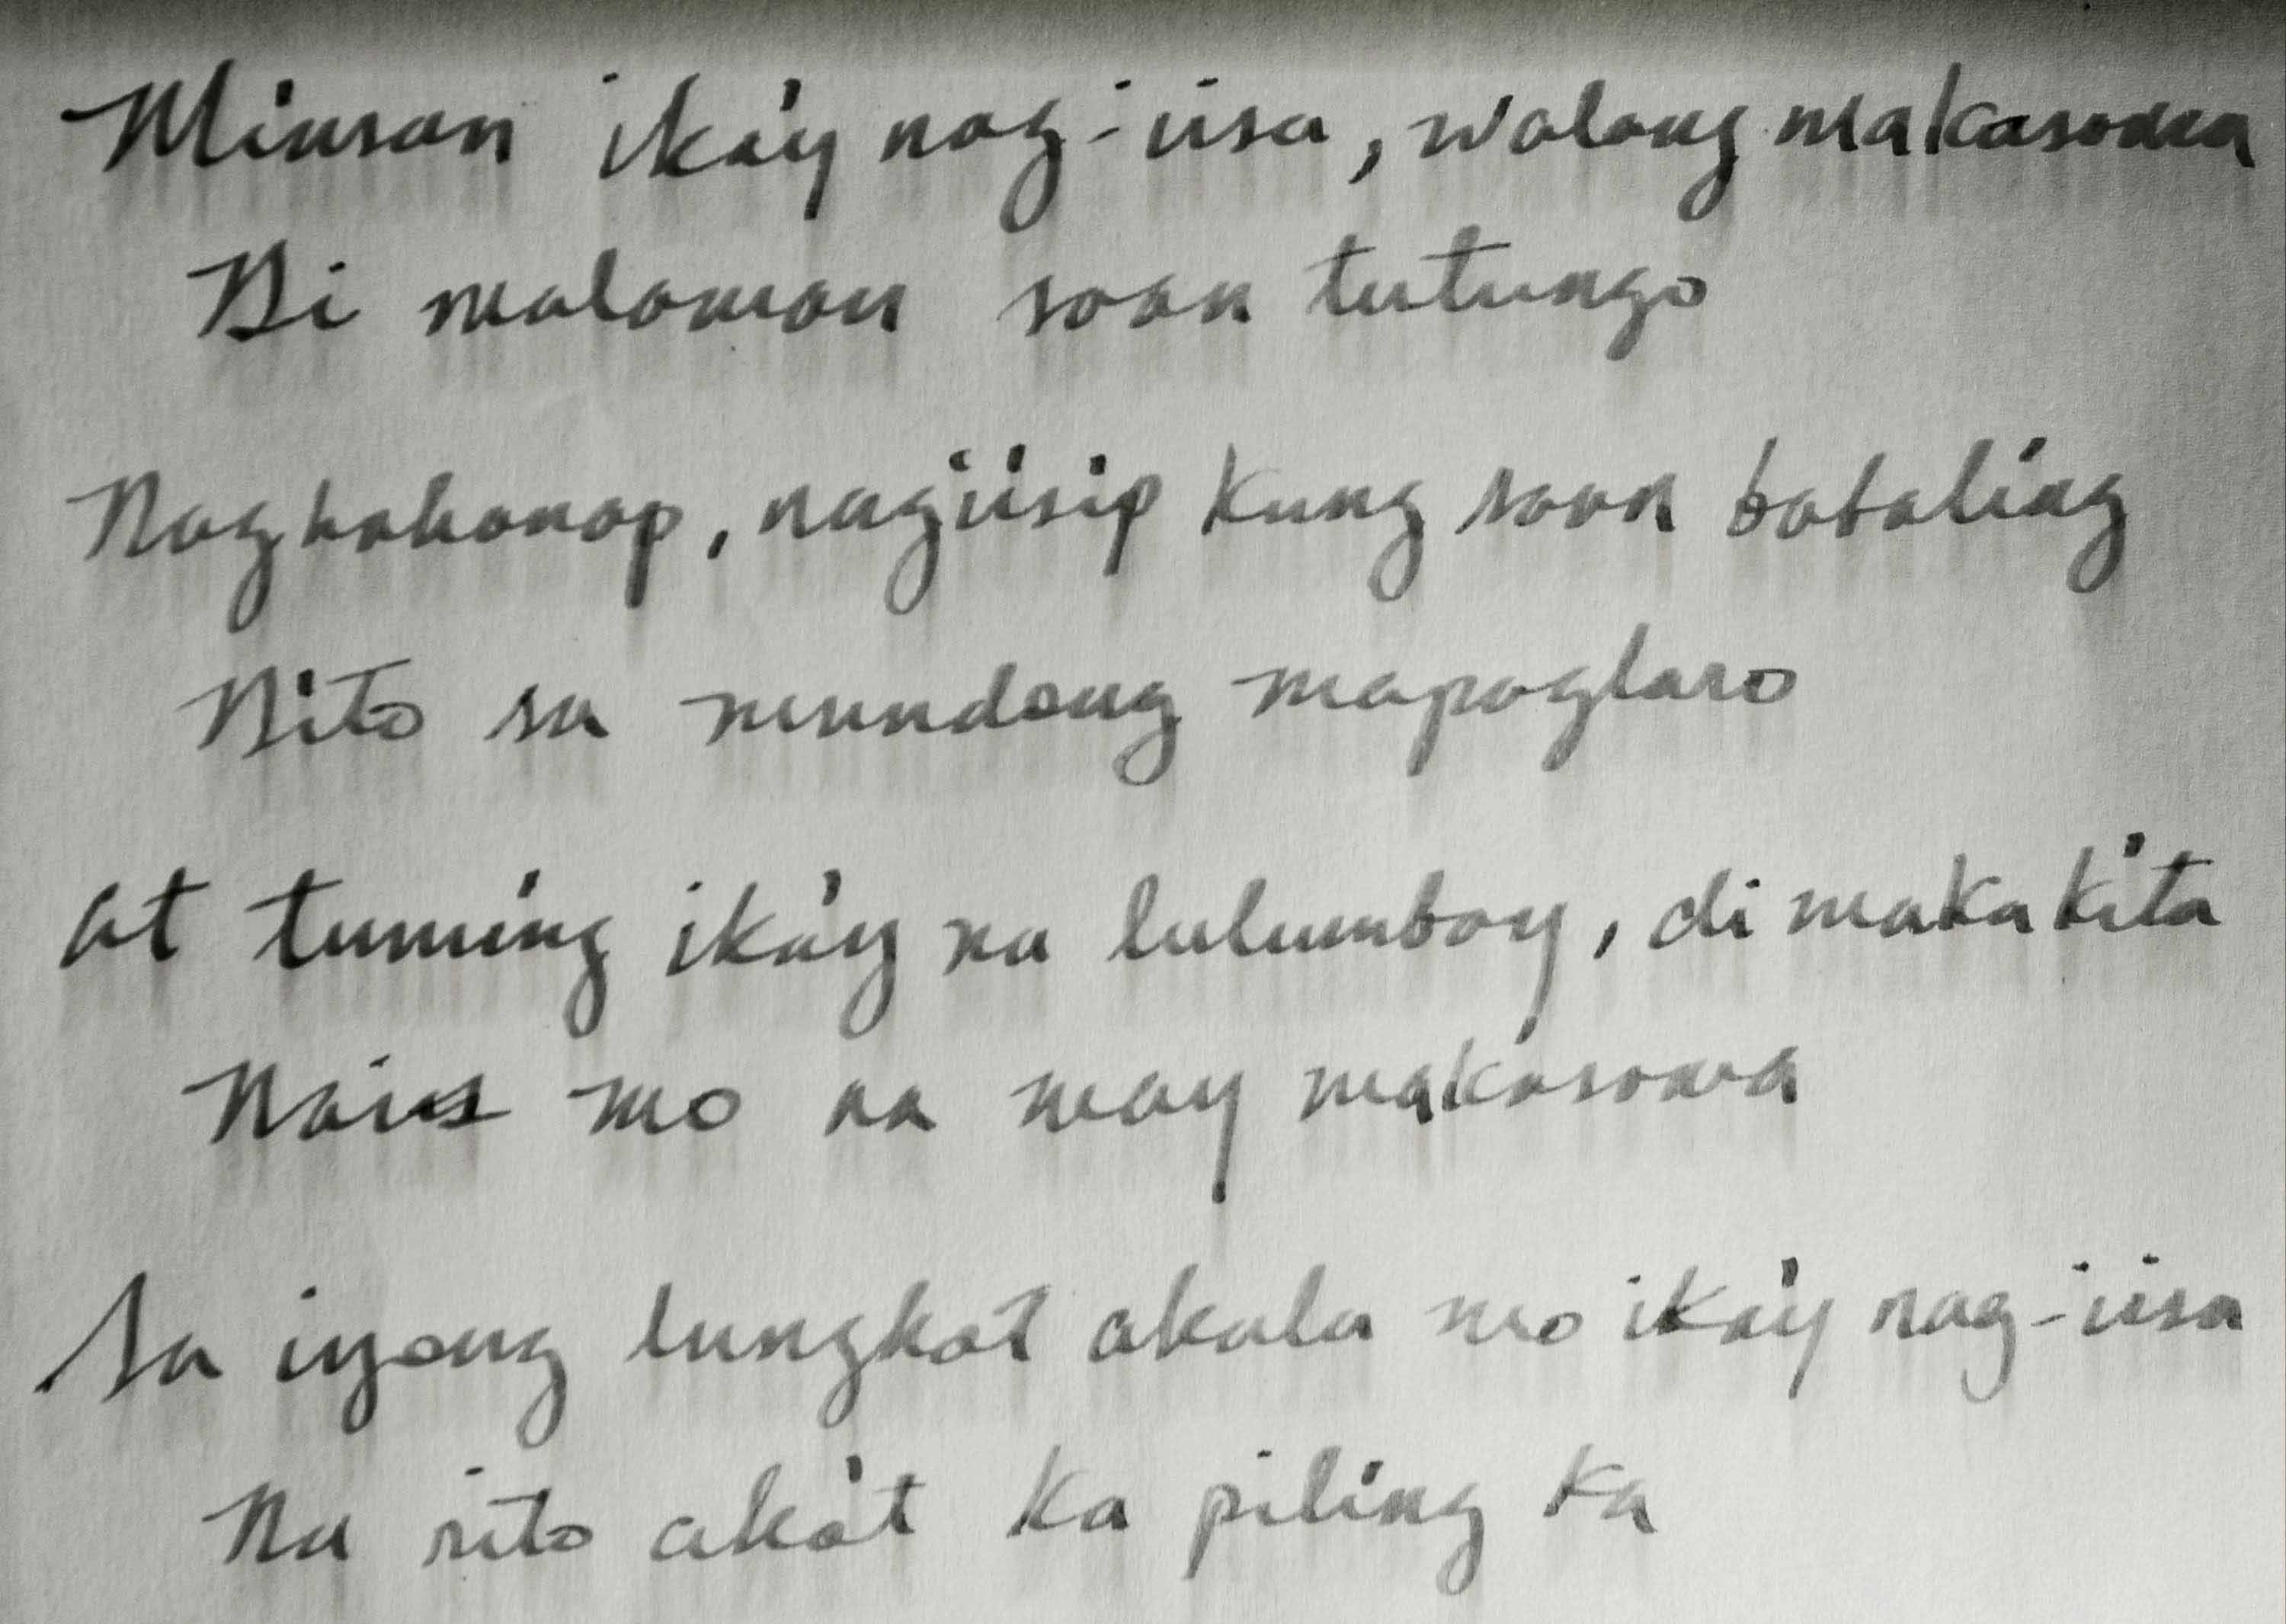 Minsan ika'y nag-iisa, walang makasama
Di malaman saan tutungo
Naghahanap, nagiisip kung saan babaling
Dito sa mundong mapaglaro
at tuwing ika'y na lulumbay, di maka kita
Nais mo na may makasama
Sa iyong lungkot akala mo ika'y nag-iisa
Na rito ako't ka piling ka